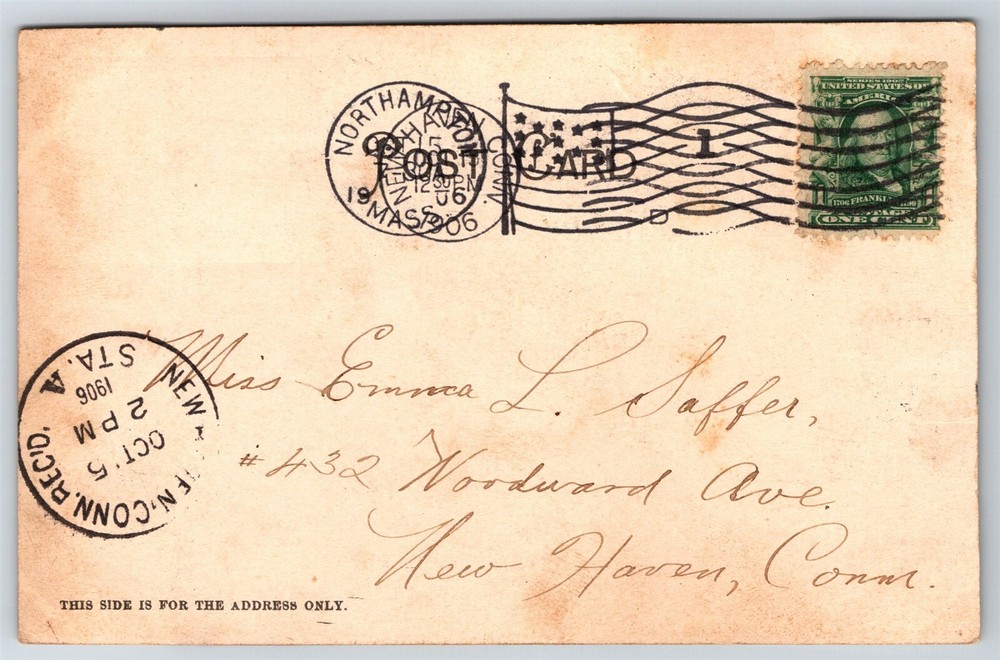 NORTHAMPTON
MASS.
1906
NEW HAVEN CONN.
15
12 30 PM
1906
POST CARD
1
D
SERIES 1902
UNITED STATES OF
AMERICA
1706 FRANKLIN 1790
POSTAGE
ONE CENT
NEW HAVEN, CONN. REC'D.
OCT 5
2 PM
1906
STA. A
Miss Emma L. Saffer,
#432 Woodward Ave.
New Haven, Conn.
THIS SIDE IS FOR THE ADDRESS ONLY.